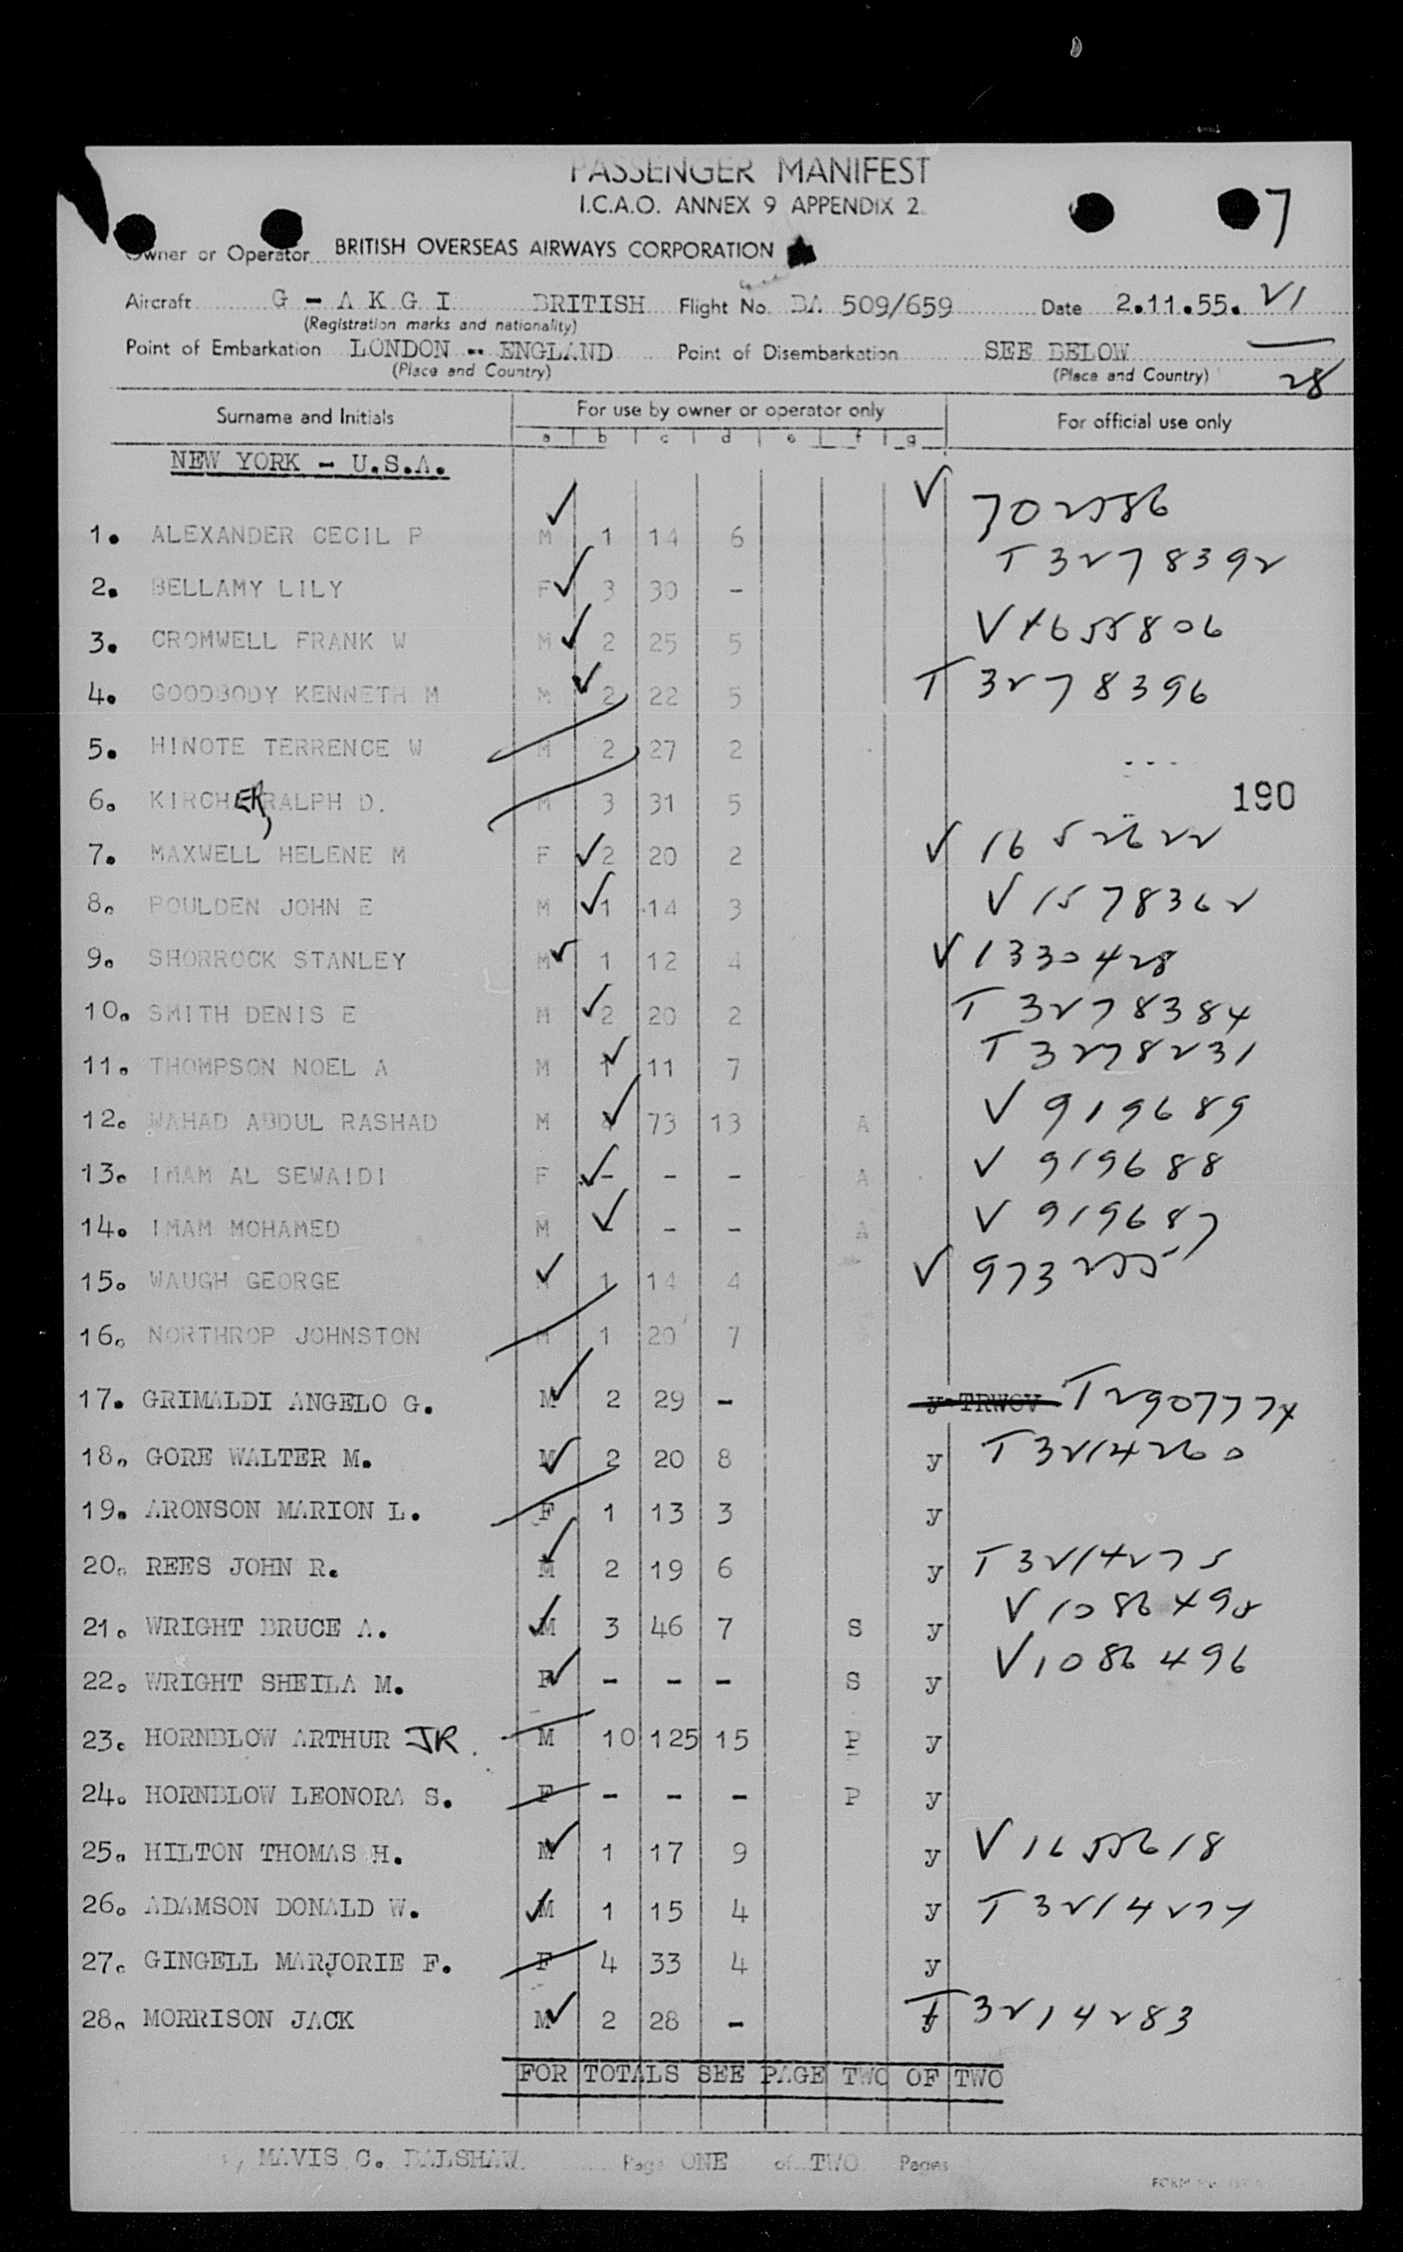 PASSENGER MANIFEST
I.C.A.O. ANNEX 9 APPENDIX 2.
7
Owner or Operator BRITISH OVERSEAS AIRWAYS CORPORATION
Aircraft G - A K G I BRITISH Flight No. BA 509/659 Date 2.11.55. 21
(Registration marks and nationality)
Point of Embarkation LONDON -- ENGLAND Point of Disembarkation SEE BELOW
(Place and Country) (Place and Country) 28
Surname and Initials For use by owner or operator only For official use only
a b c d e f g
NEW YORK - U.S.A.
1. ALEXANDER CECIL P M 1 14 6 V 702586
2. BELLAMY LILY F 3 30 - T 3278392
3. CROMWELL FRANK W M 2 25 5 V 4655806
4. GOODBODY KENNETH M M 2 22 5 T 3278396
5. HINOTE TERRENCE W M 2 27 2
6. KIRCHER, RALPH D. M 3 31 5 190
7. MAXWELL HELENE M F 2 20 2 V 1652622
8. POULDEN JOHN E M 1 14 3 V 1578362
9. SHORROCK STANLEY M 1 12 4 V 1330428
10. SMITH DENIS E M 2 20 2 T 3278384
11. THOMPSON NOEL A M 1 11 7 T 3278231
12. WAHAD ABDUL RASHAD M 4 73 13 A V 919689
13. IMAM AL SEWAIDI F - - - A V 919688
14. IMAM MOHAMED M - - - A V 919687
15. WAUGH GEORGE M 1 14 4 V 973255
16. NORTHROP JOHNSTON M 1 20 7
17. GRIMALDI ANGELO G. M 2 29 - y TRWOV T 2907774
18. GORE WALTER M. M 2 20 8 y T 3214260
19. ARONSON MARION L. F 1 13 3 y
20. REES JOHN R. M 2 19 6 y T 3214275
21. WRIGHT BRUCE A. M 3 46 7 S y V 1086498
22. WRIGHT SHEILA M. F - - - S y V 1086496
23. HORNBLOW ARTHUR JR. M 10 125 15 P y
24. HORNBLOW LEONORA S. F - - - P y
25. HILTON THOMAS H. M 1 17 9 y V 1655618
26. ADAMSON DONALD W. M 1 15 4 y T 3214274
27. GINGELL MARJORIE F. F 4 33 4 y
28. MORRISON JACK M 2 28 - y T 3214283
FOR TOTALS SEE PAGE TWO OF TWO
MAVIS C. DALSHAW Page ONE of TWO Pages
FORM